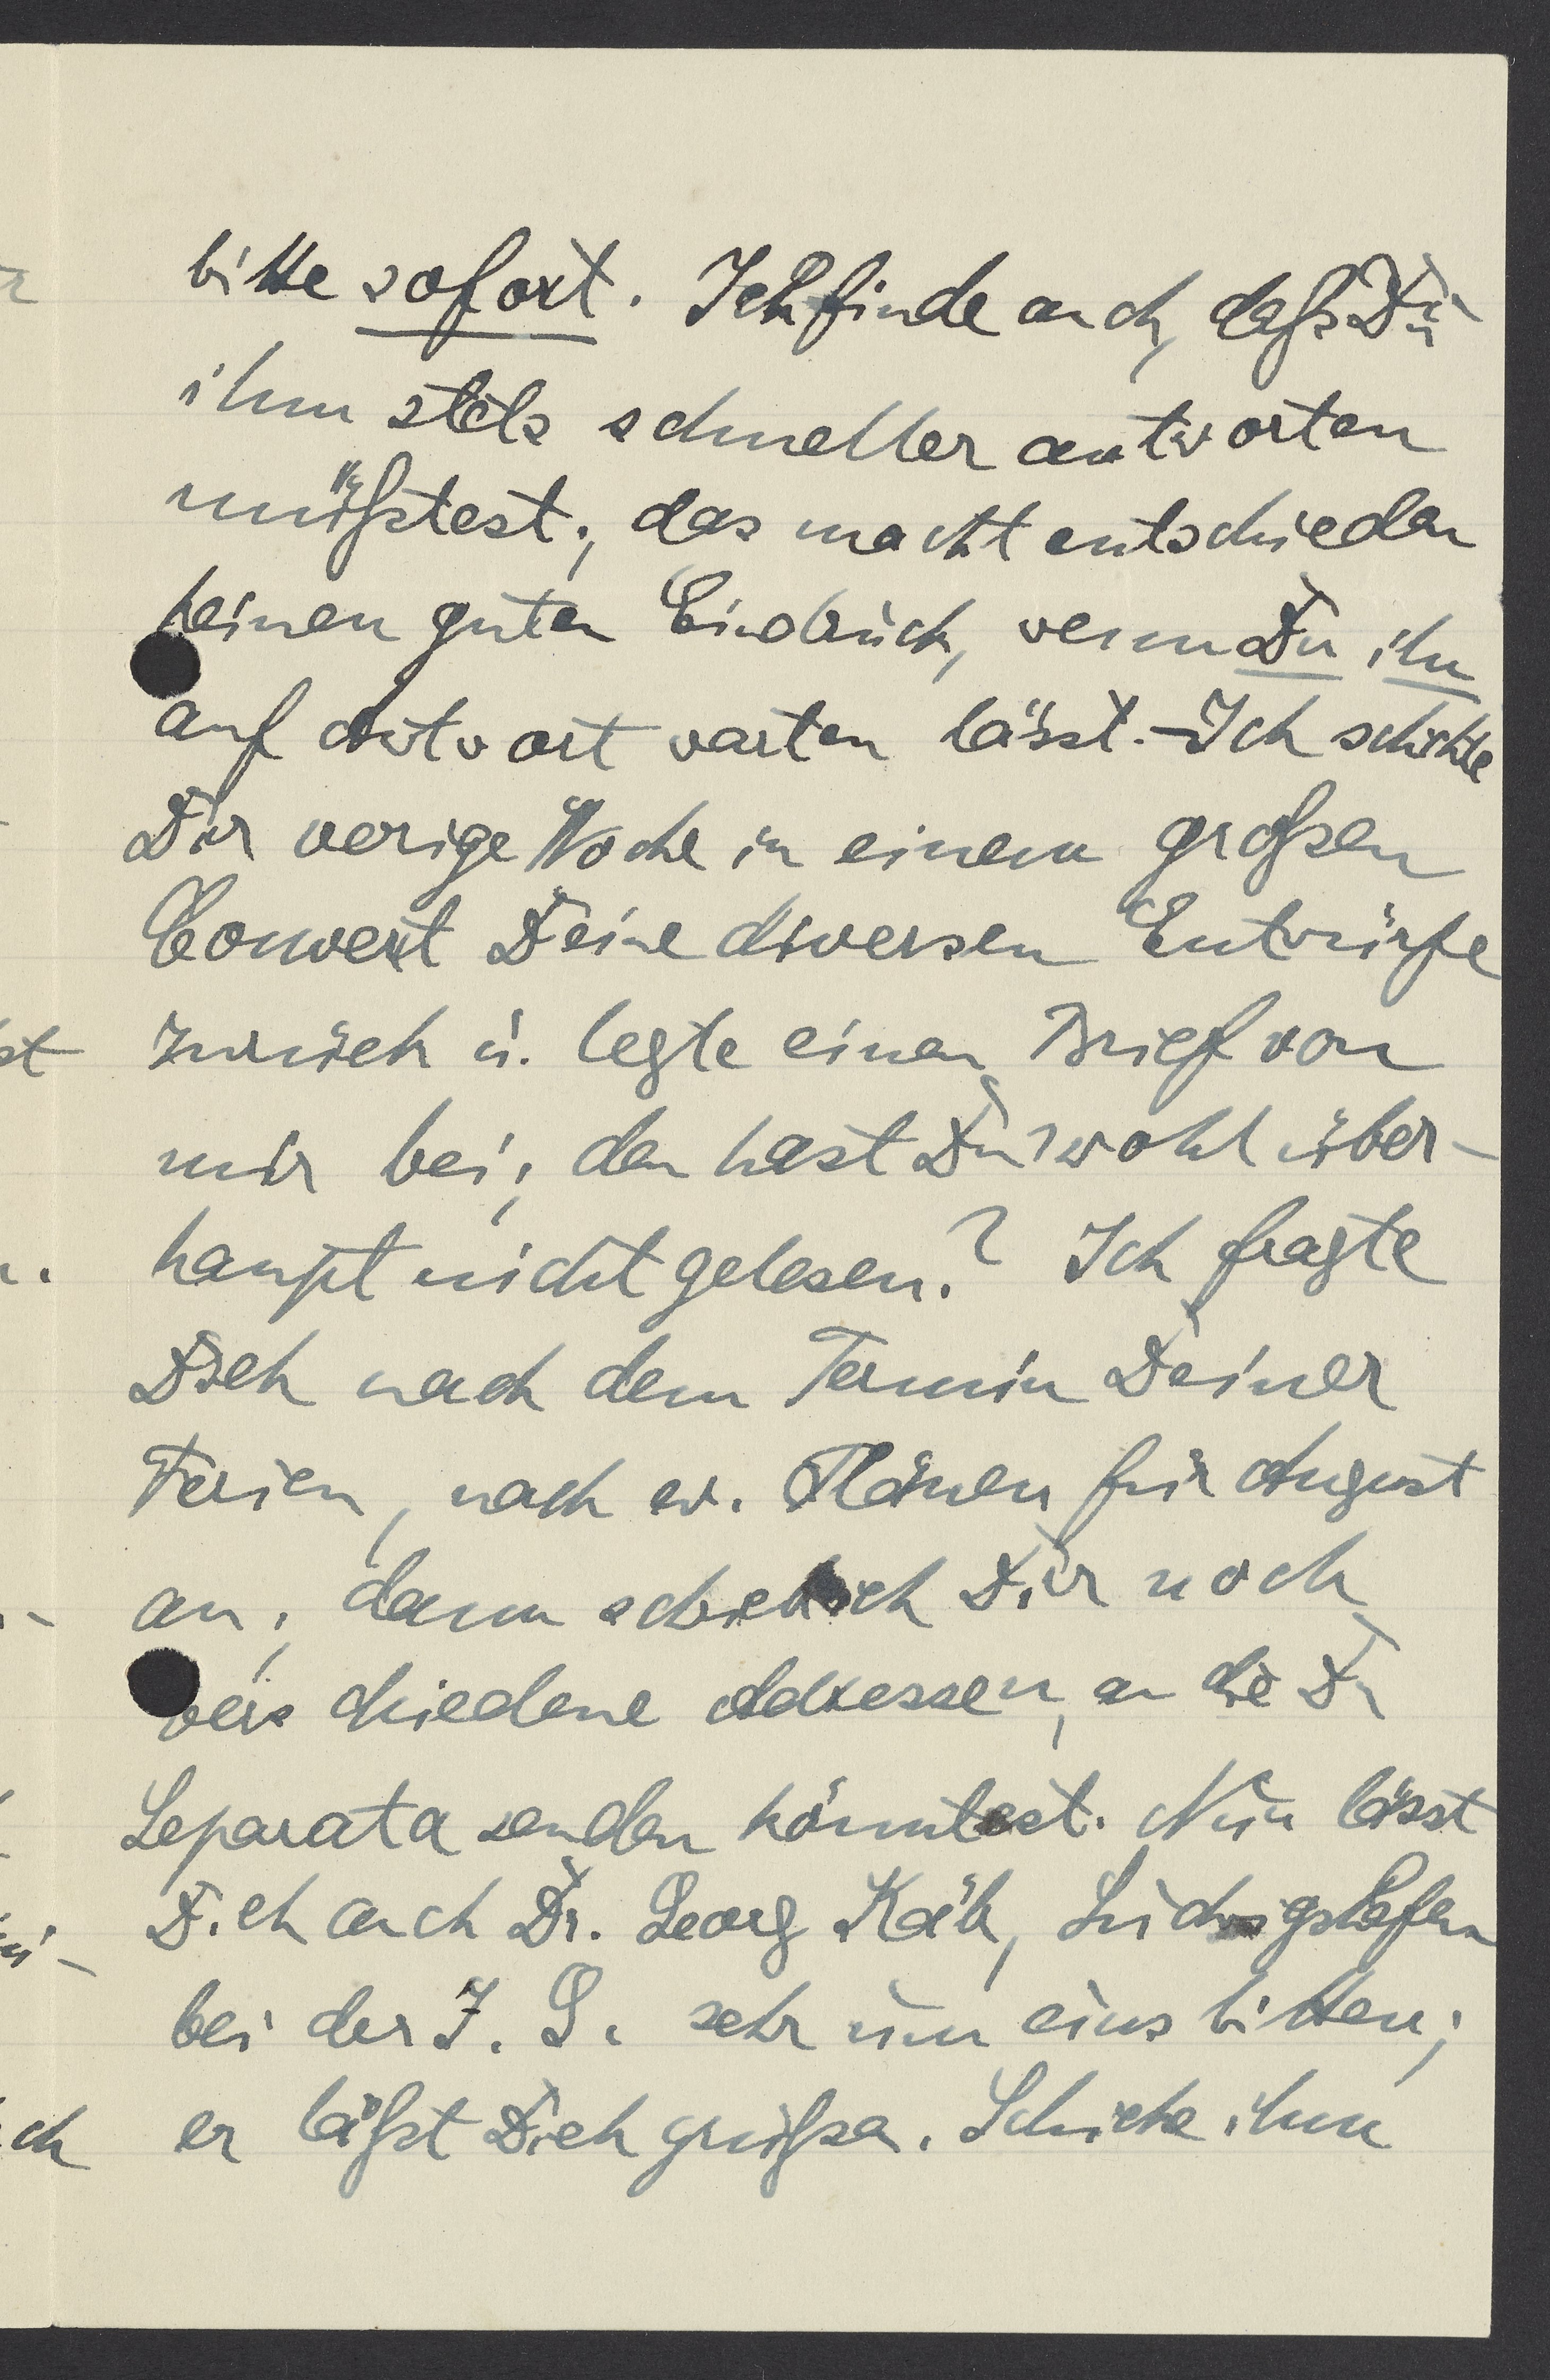 bitte sofort. Ich finde auch, daß Du
ihm stets schneller antworten
müßtest; das macht entschieden
keinen guten Eindruck, wenn Du ihn
auf Antwort warten lässt. - Ich schickte
Dir vorige Woche in einem großen
Couvert Deine diversen Entwürfe
zurück u. legte einen Brief von
mir bei; den hast Du wohl über-
haupt nicht gelesen.? Ich fragte
Dich nach dem Termin Deiner
Ferien, nach ev. Plänen für August
an; dann schrieb ich Dir noch
verschiedene Adressen, an die Du
Separata senden könntest. Nun lässt
Dich auch Dr. Georg Ludwigshafen
bei der I. G. sehr um eins bitten;
er läßt Dich grüßen. Schicke ihm